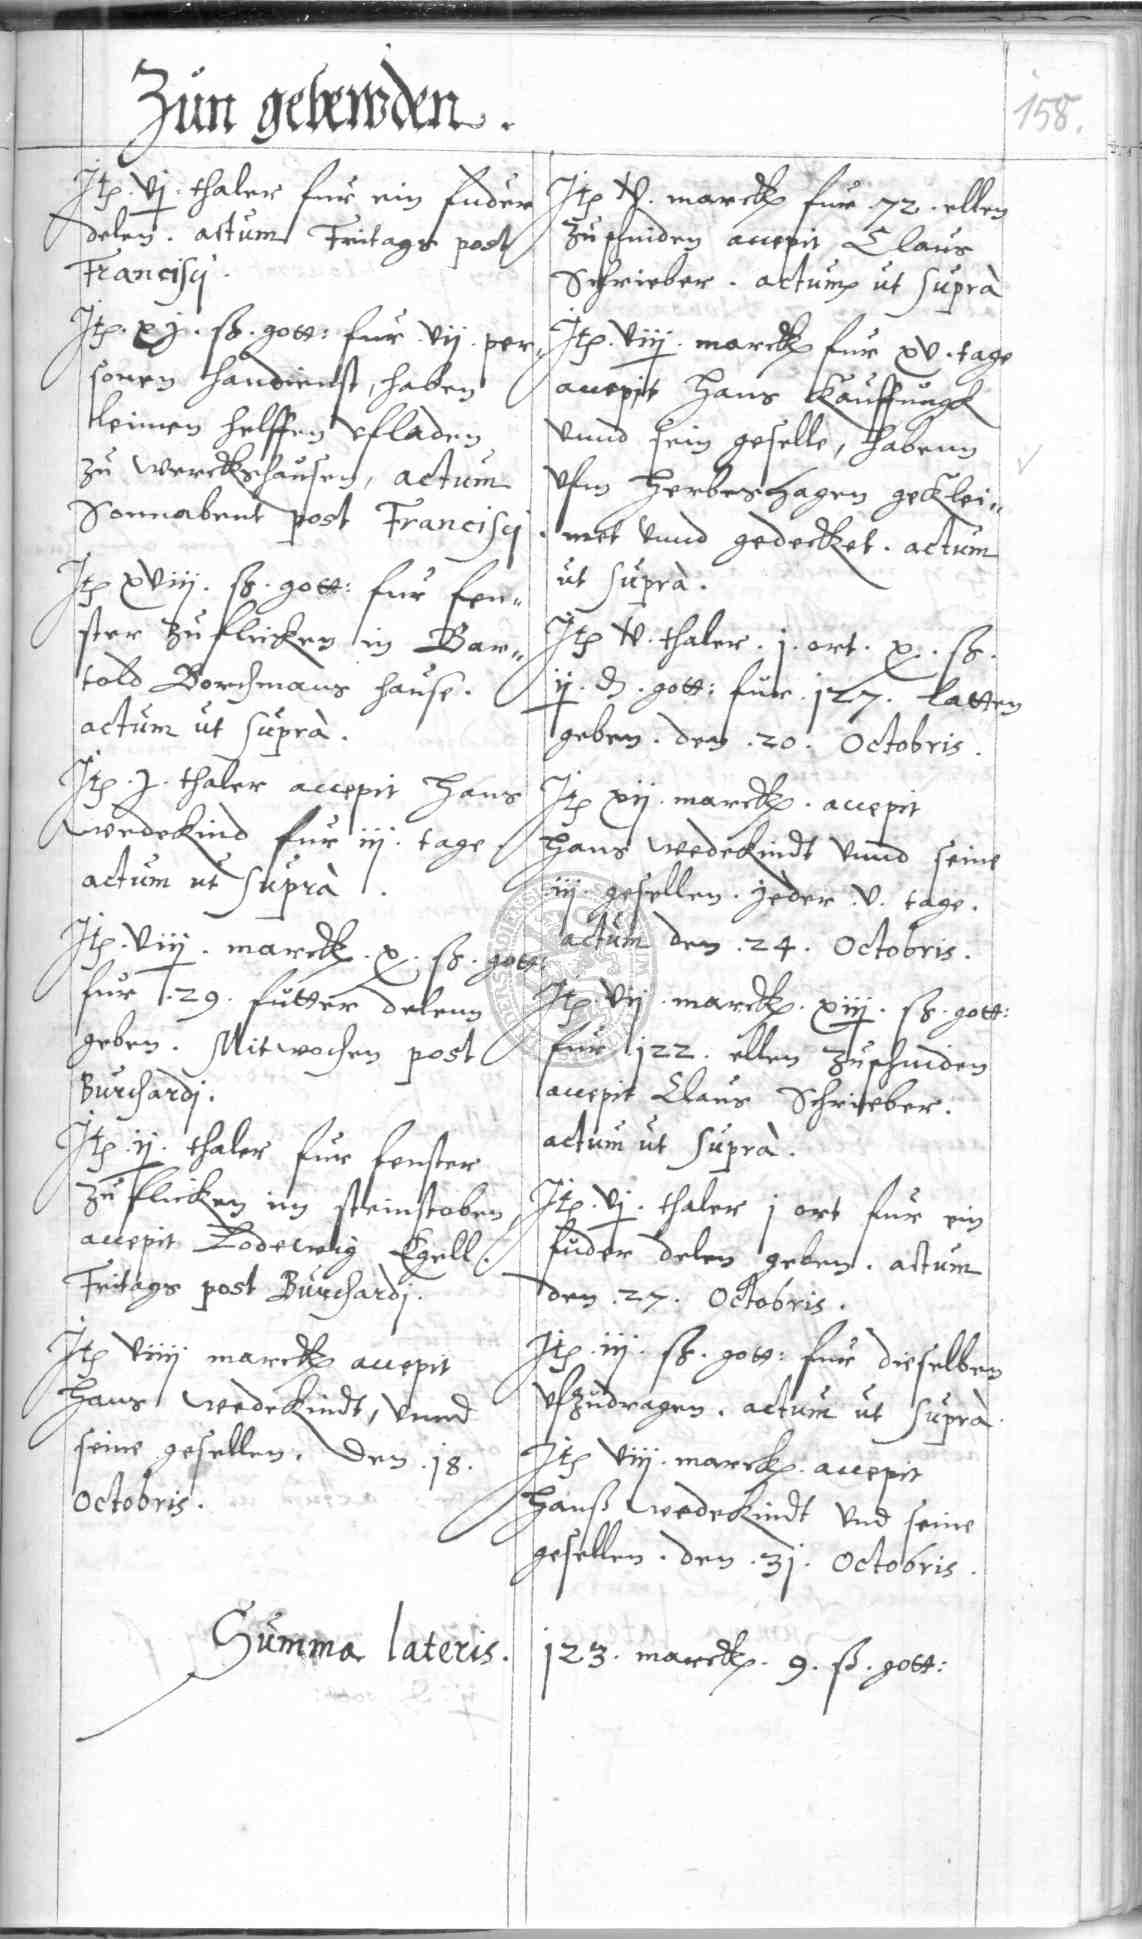 Zun gebewden.
158.
Itē. vj. thaler fur ein fuder
delen. actum Fritags post
Francisci.
Itē. xj. ß. gott: fur vij. per„
sonen handienst, haben
leimen helffen vfladen
zu werckshausen, actum
Sonnabent post Francisci.
Itē xviij. ß. gott: fur fen„
ster zuflicken in Bar„
told Borchmans hause.
actum ut suprà.
Itē. j. thaler accepit Hans
wedekind fur iij. tage
actum ut suprà.
Itē. viij. marck. x. ß. gott:
fur .29. futter delenn
geben. Mitwochen post
Burchardj.
Itē. ij. thaler fur fenster
zu flicken im steinstoben,
accepit Lodewig Egell.
Fritags post Burchardj.
Itē viiij marck accepit
Hans wedekindt, vnnd
seine gesellen. den .18.
Octobris.
Itē v. marck fur .72. ellen
zuschniden accepit Claus
Schrieber. actum ut suprà
Itē. viij. marck fur xv. tage
accepit Hans Kauffungk
vnnd sein geselle, habenn
vfm Herbershagen geklei„
met vnnd gedecket. actum
ut suprà.
Itē v. thaler. j. ort. x. ß.
ij. d. gott: fur .127. latten
geben. den .20. Octobris.
Itē xij. marck. accepit
Hans wedekindt vnnd seine
iij. gesellen. jeder .v. tage.
actum den .24. Octobris.
Itē. vij. marck. xiij. ß. gott:
fur 122. ellen zuschniden
accepit Claus Schrieber.
actum ut suprà.
Itē. vj. thaler j ort fur ein
fuder delen geben. actum
den .27. Octobris.
Itē. iij. ß. gott: fur dieselben
vfzudragen. actum ut suprà.
Itē viij. marck. accepit
Hanß wedekindt vnd seine
gesellen. den .31. Octobris.
Summa lateris. 123. marck. 9. ß. gott: